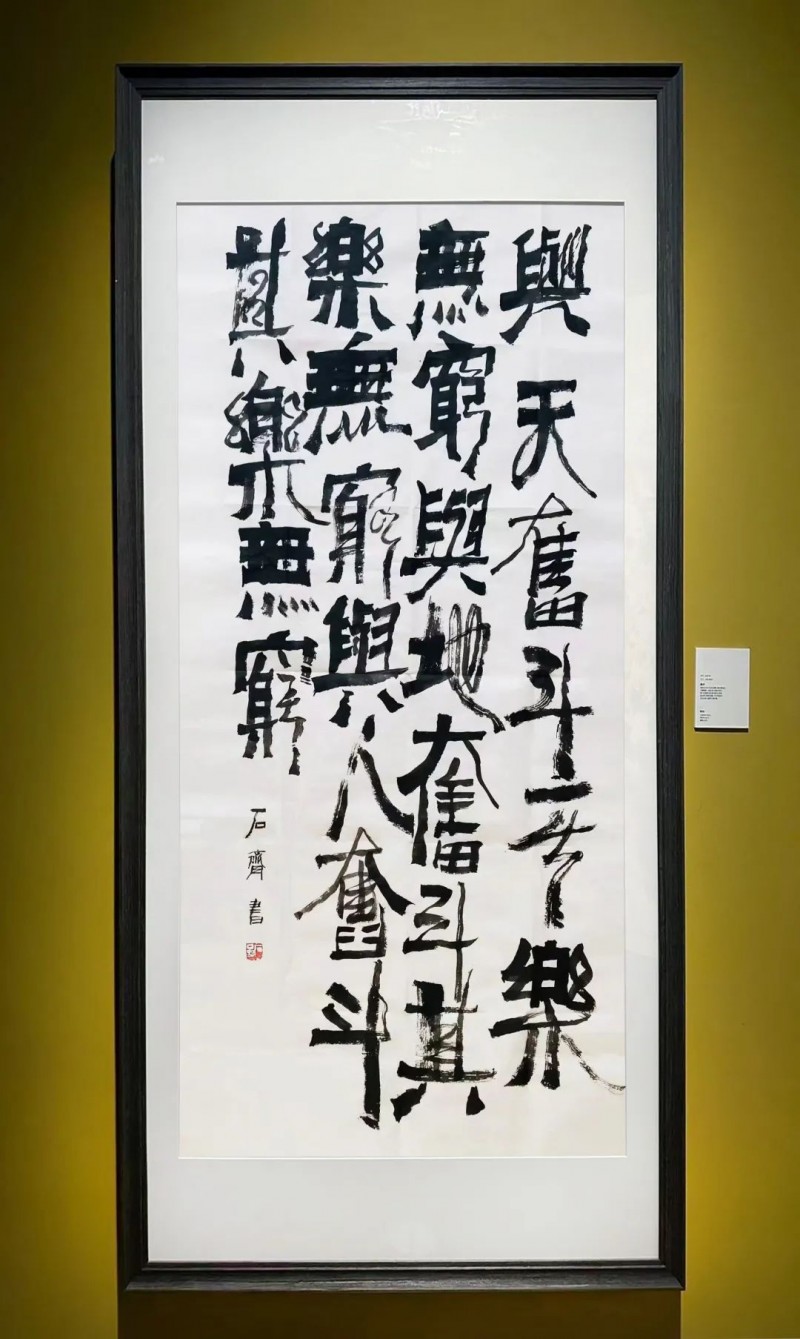 與天奮斗其樂
無窮與地奮斗其
樂無窮與人奮斗
其樂無窮
石齊書